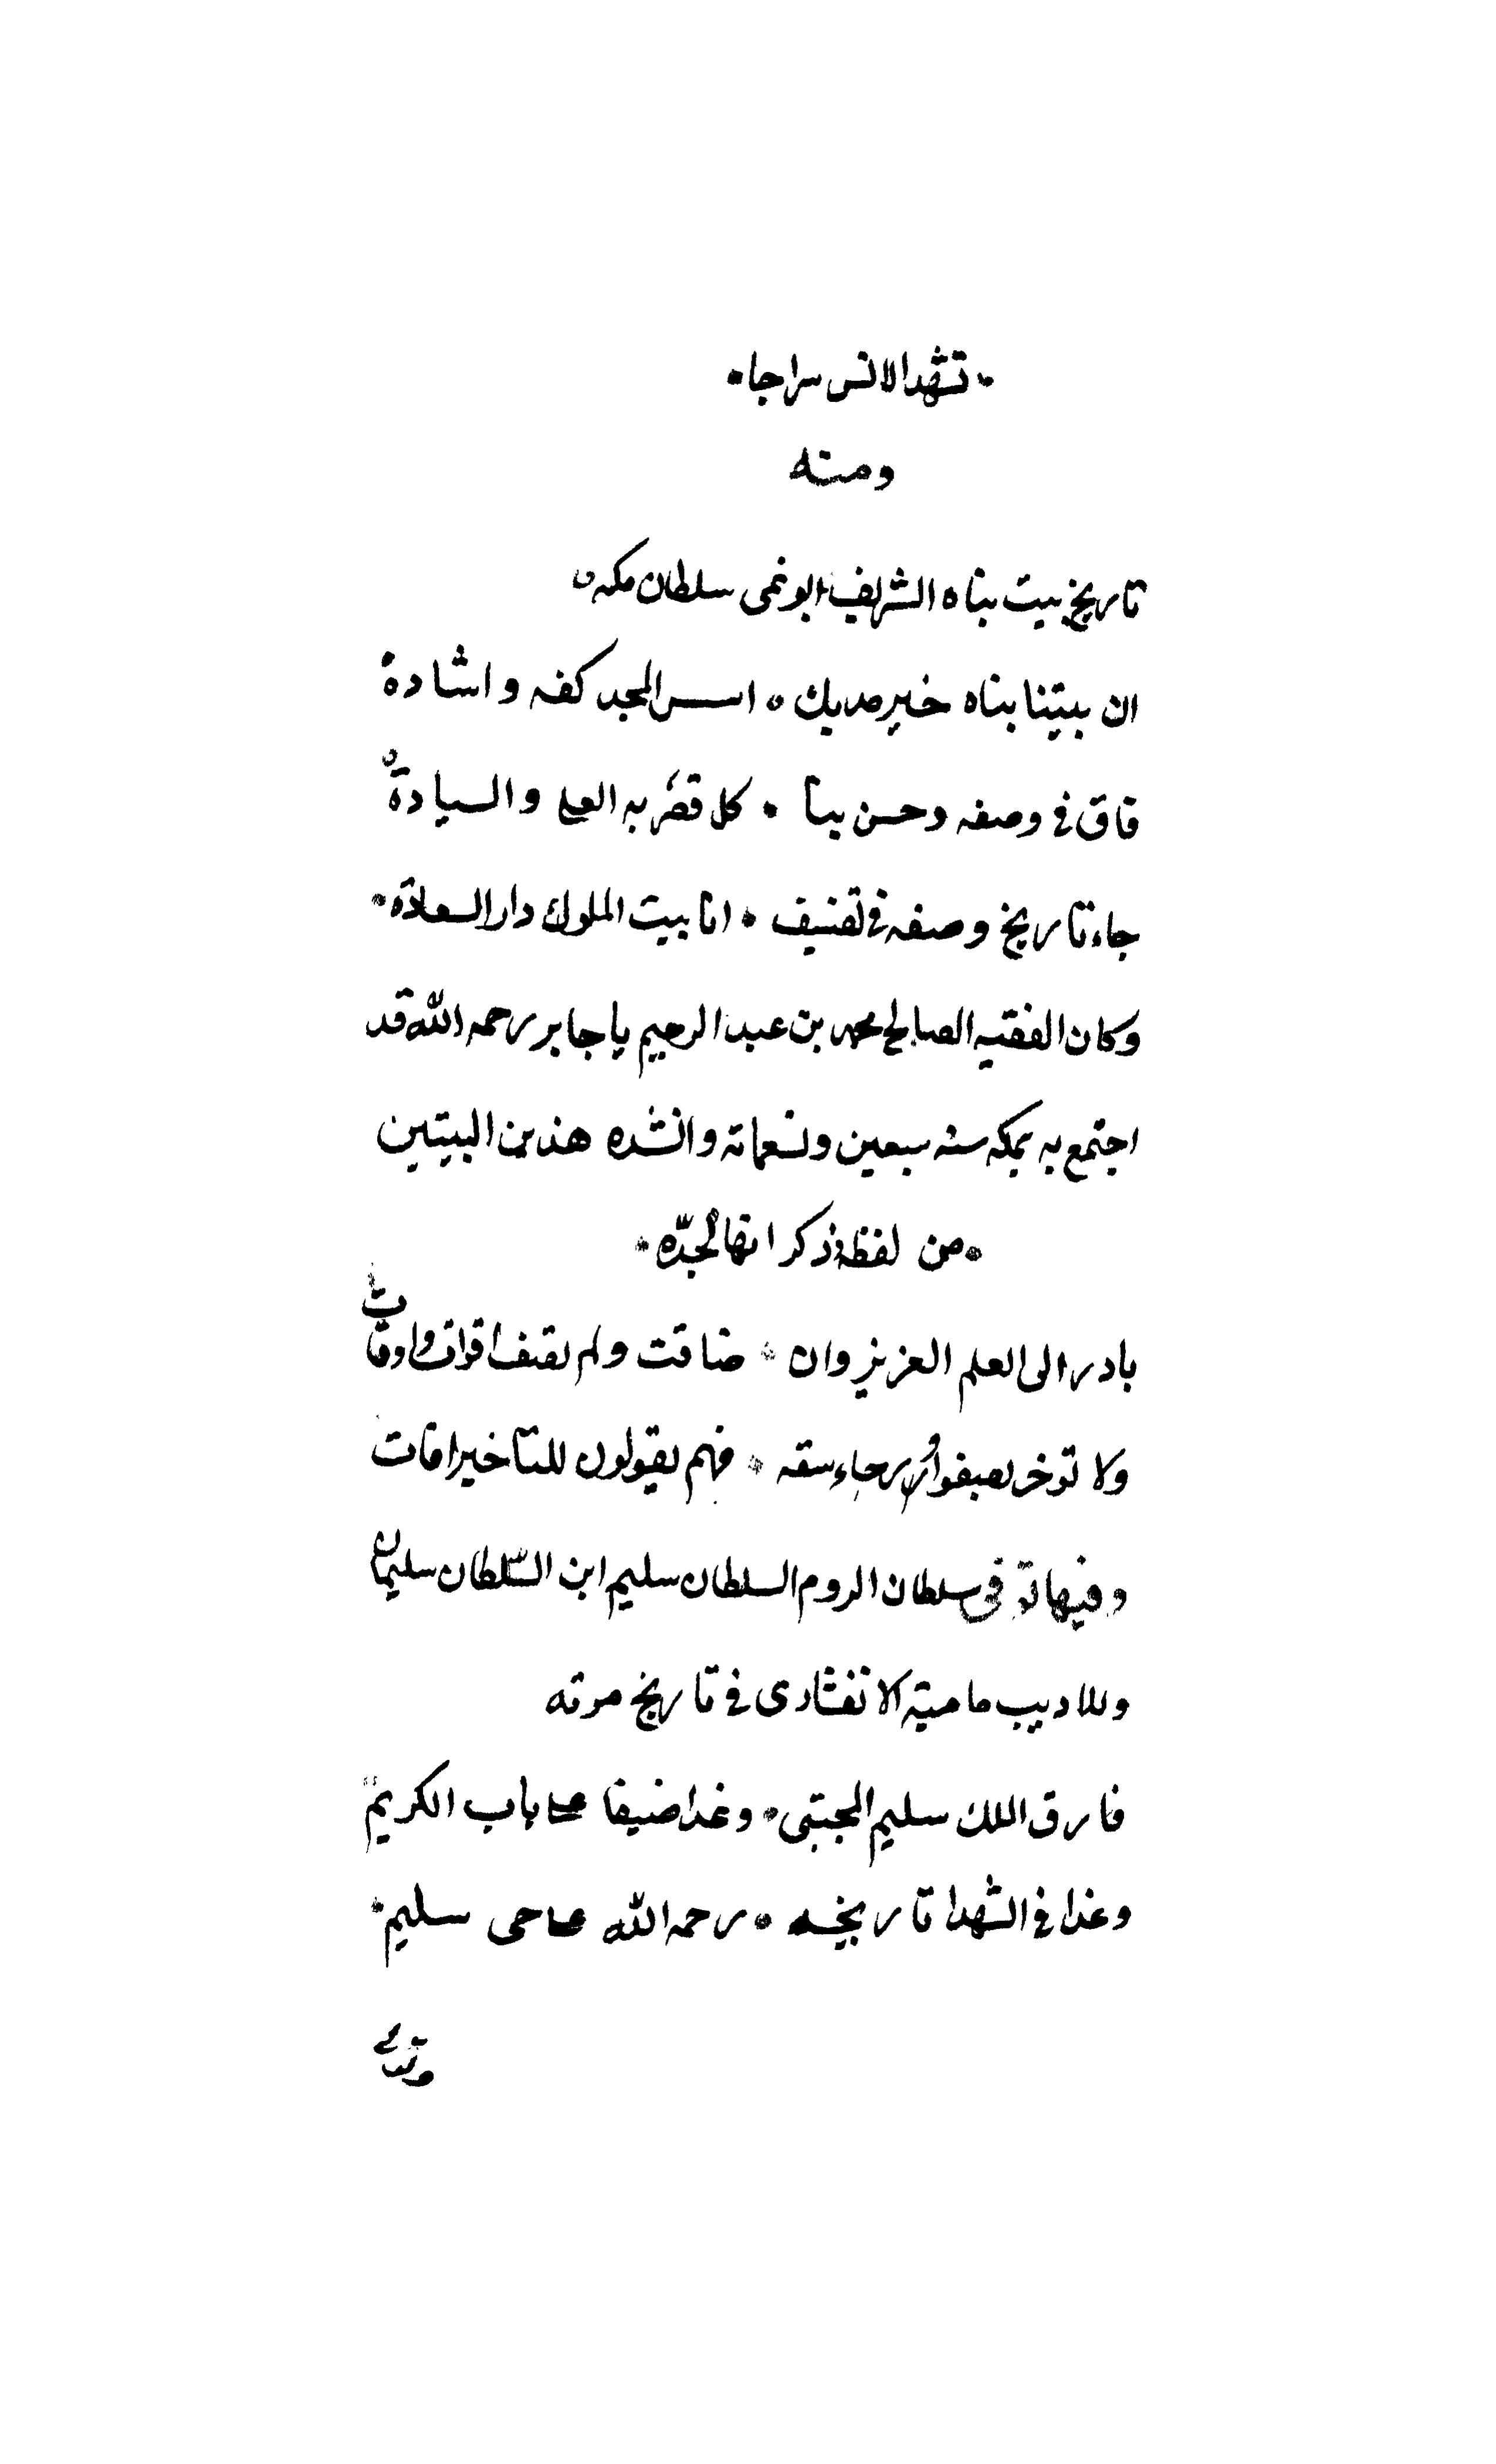 تشهد الانس سراجا
ومنه
تاريخ بيت بناه الشريف ابو نمى سلطان مكه
ان بيتنا بناه خير مليك * اسس المجد كفه واشادة
فاق في وصفه وحسن بنا * كل قصر به العلى والسيادة
جاء تاريخ وصفه في تصنيف * انا بيت الملوك دار السعادة
وكان الفقيه الصالح محمد بن عبد الرحيم باجابر رحمه الله قد
اجتمع به بمكه سنه سبعين وتسعمائة وانشده هذين البيتين
من لفظه وذكر انها لجده
بادر الى العلم العزيز وان * ضاقت ولم تصف اقوات واوقات
ولا توخر لصفو رجاء سقه * فهم يقولون للتاخير افات
وفيها توفى سلطان الروم السلطان سليم ابن السلطان سليمان
وللاديب ماميه الانقشارى في تاريخ موته
فارق الملك سليم المجتبى * وغدا ضيفا على باب الكريم
وغدا في الشهدا تاريخه * رحمه الله على حى سليم